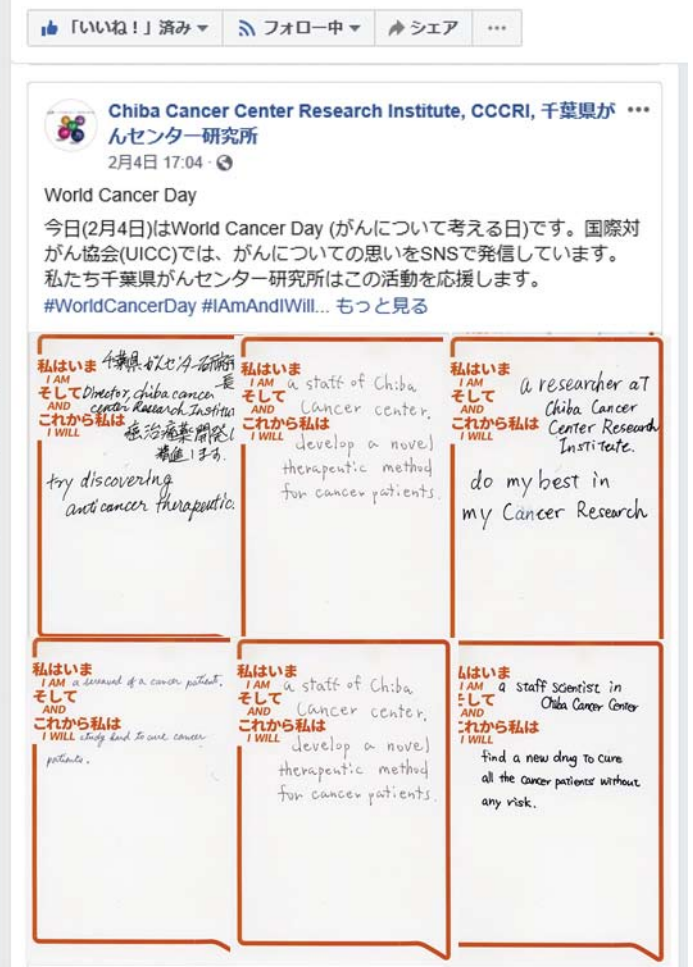 「いいね！」済み フォロー中 シェア
Chiba Cancer Center Research Institute, CCCRI, 千葉県が
んセンター研究所
2月4日 17:04
World Cancer Day
今日(2月4日)はWorld Cancer Day (がんについて考える日)です。国際対
がん協会(UICC)では、がんについての思いをSNSで発信しています。
私たち千葉県がんセンター研究所はこの活動を応援します。
#WorldCancerDay #IAmAndIWill... もっと見る
私はいま 千葉県がんセンター研究所
I AM 長
そして Director, chiba cancer
AND center Research Institu
これから私は
I WILL 癌治療薬開発に
精進します.
try discovering
anticancer therapeutic.
私はいま
I AM a staff of Chiba
そして
AND Cancer center.
これから私は
I WILL develop a novel
therapeutic method
for cancer patients.
私はいま
I AM a researcher at
そして
AND Chiba Cancer
これから私は Center Research
I WILL Institute.
do my best in
my Cancer Research
私はいま
I AM a of a cancer patient.
そして
AND
これから私は
I WILL study hard to cure cancer
patients.
私はいま
I AM a staff of Chiba
そして
AND Cancer center.
これから私は
I WILL develop a novel
therapeutic method
for cancer patients.
私はいま
I AM a staff scientist in
そして Chiba Cancer Center
AND
これから私は
I WILL
find a new drug to cure
all the cancer patients without
any risk.